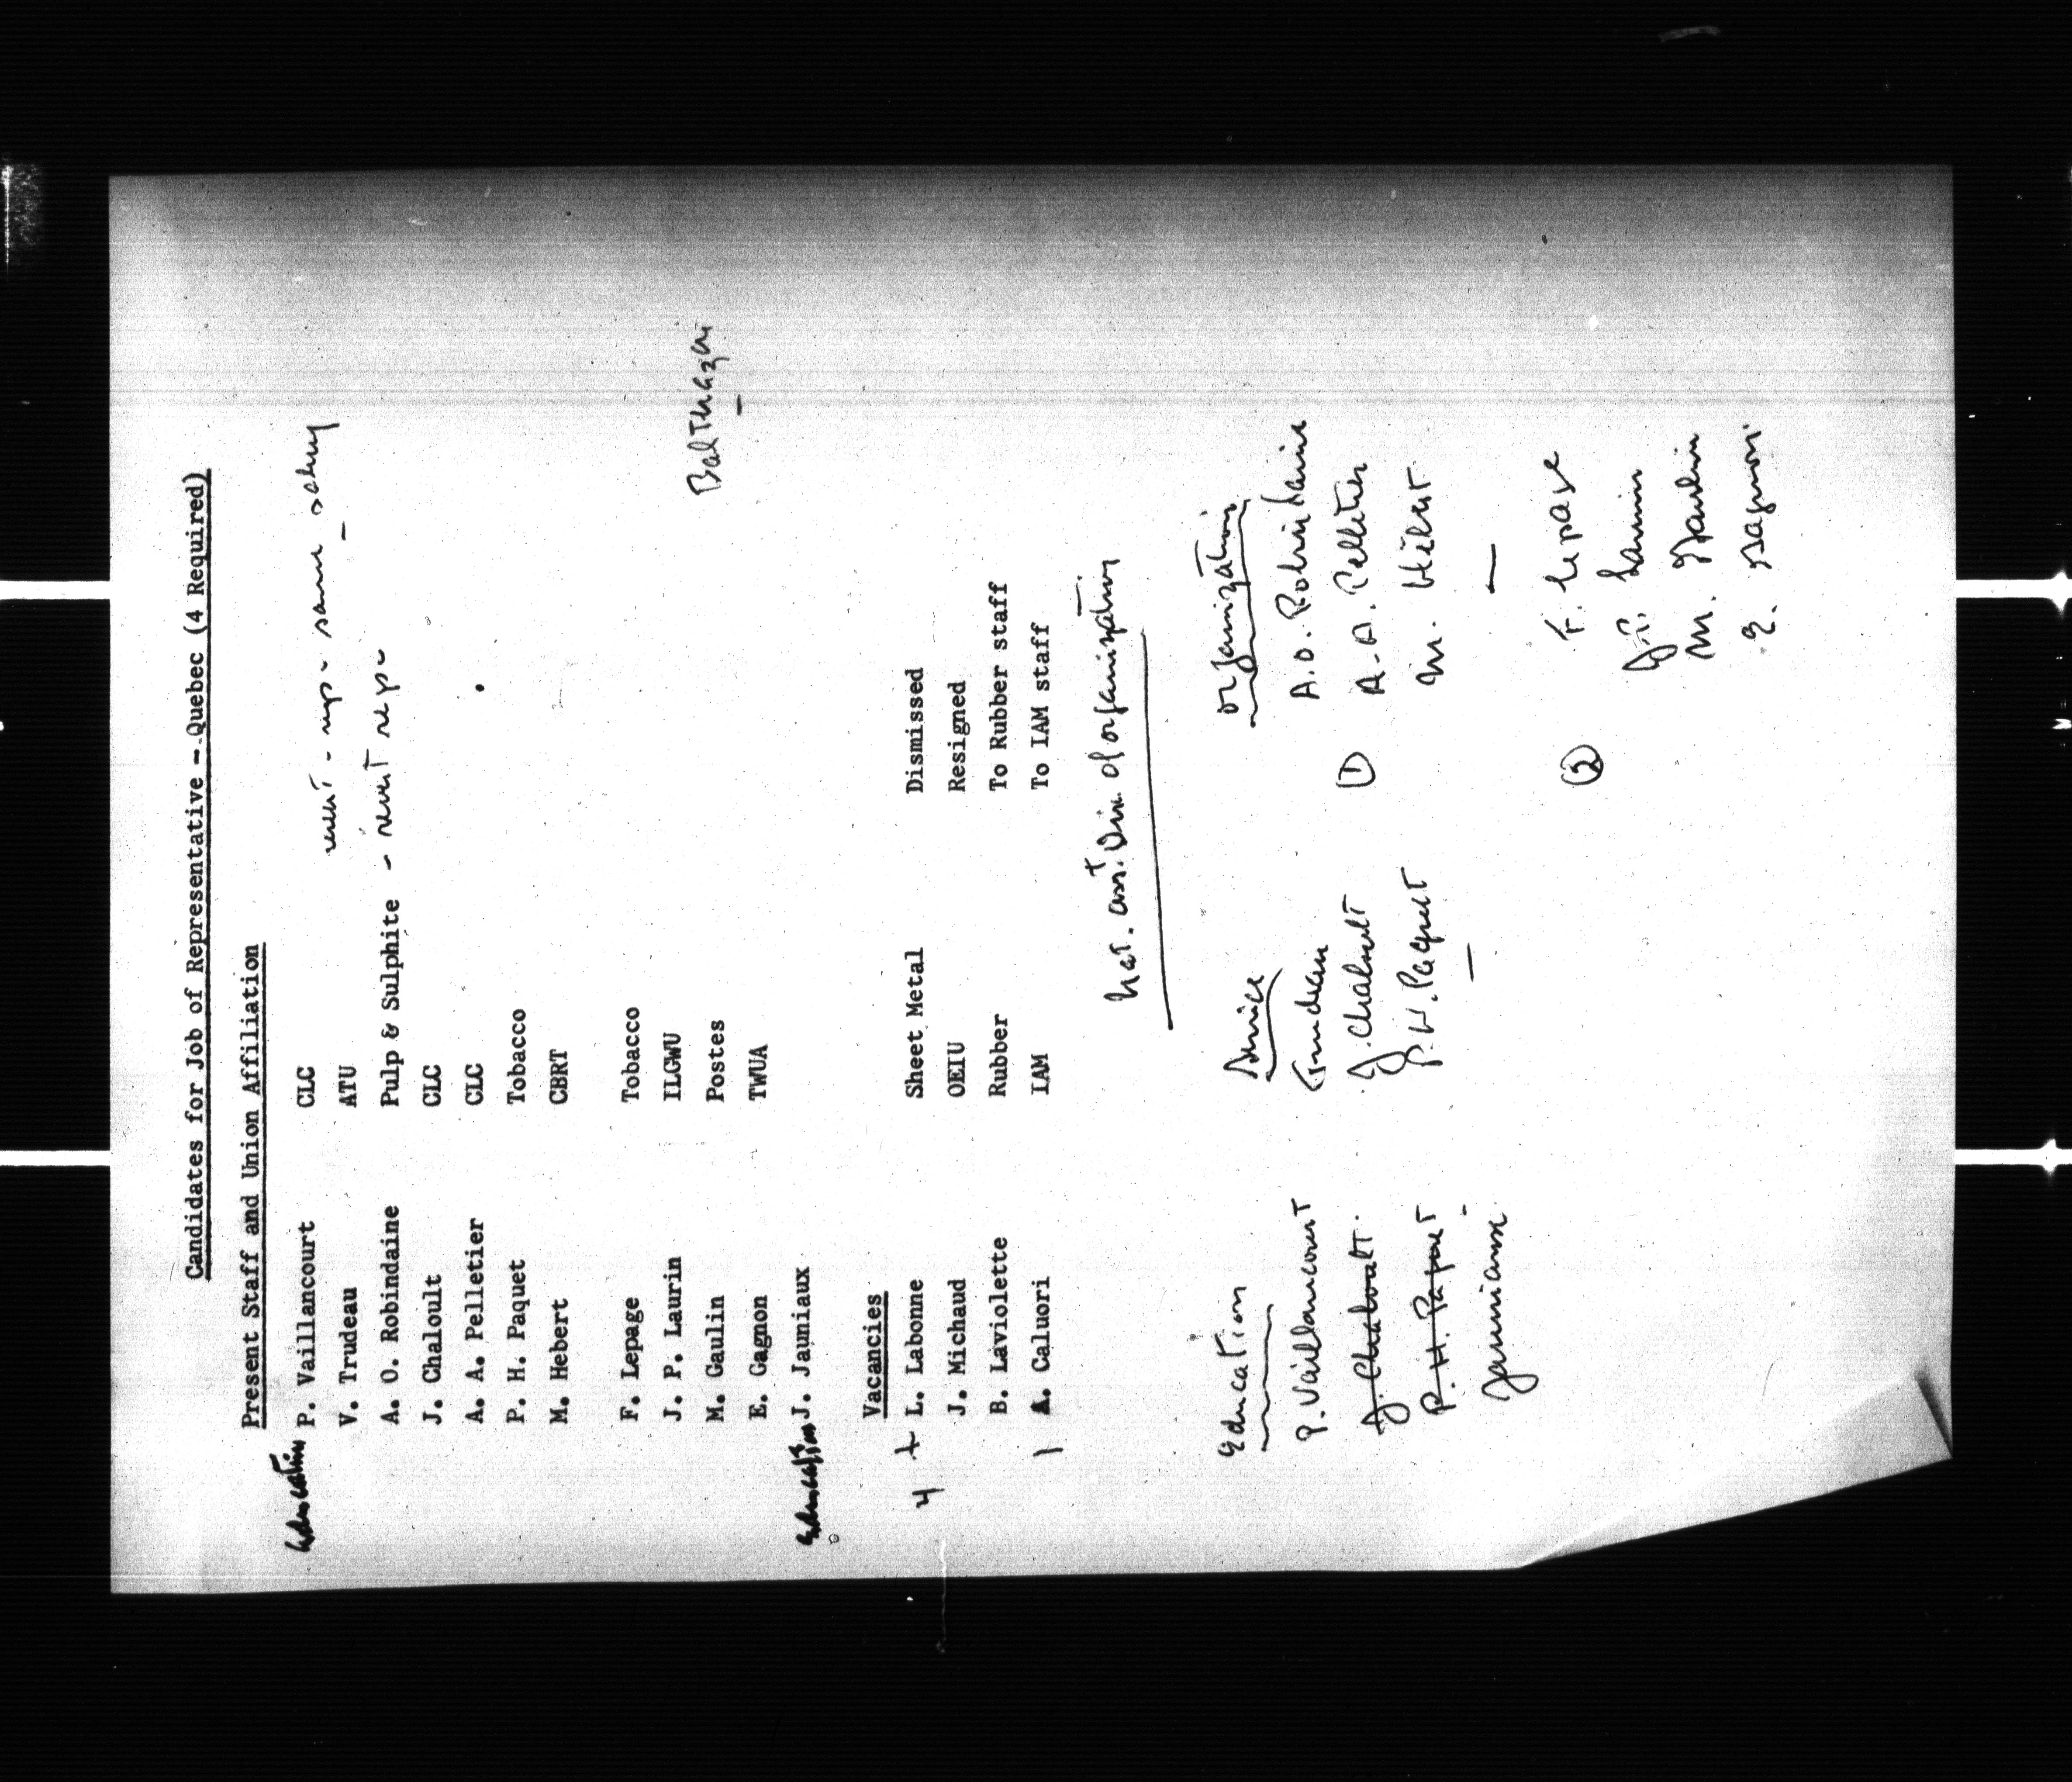 Candidates for Job of Representative -- Quebec (4 Required)
Present Staff and Union Affiliation
Education P. Vaillancourt CLC
rep - same salary
V. Trudeau ATU
A. O. Robindaine Pulp & Sulphite - rep.
J. Chaloult CLC
A. A. Pelletier CLC
P. H. Paquet Tobacco
M. Hebert CBRT
F. Lepage Tobacco
J. P. Laurin ILGWU
M. Gaulin Postes
Balthazar
E. Gagnon TWUA
Education J. Jauniaux
Vacancies
4 + L. Labonne Sheet Metal Dismissed
J. Michaud OEIU Resigned
B. Laviolette Rubber To Rubber staff
1 A. Caluori IAM To IAM staff
Nat. asst. Dir. of organization
Education Service Organization
P. Vaillancourt Trudeau A.O. Robindaine
J. Chaloult. J. Chaloult (1) A.A. Pelletier
P. H. Paquet P. H. Paquet M. Hébert.
Jauniaux
(2) F. Lepage
J.P. Laurin
M. Gaulin
E. Gagnon